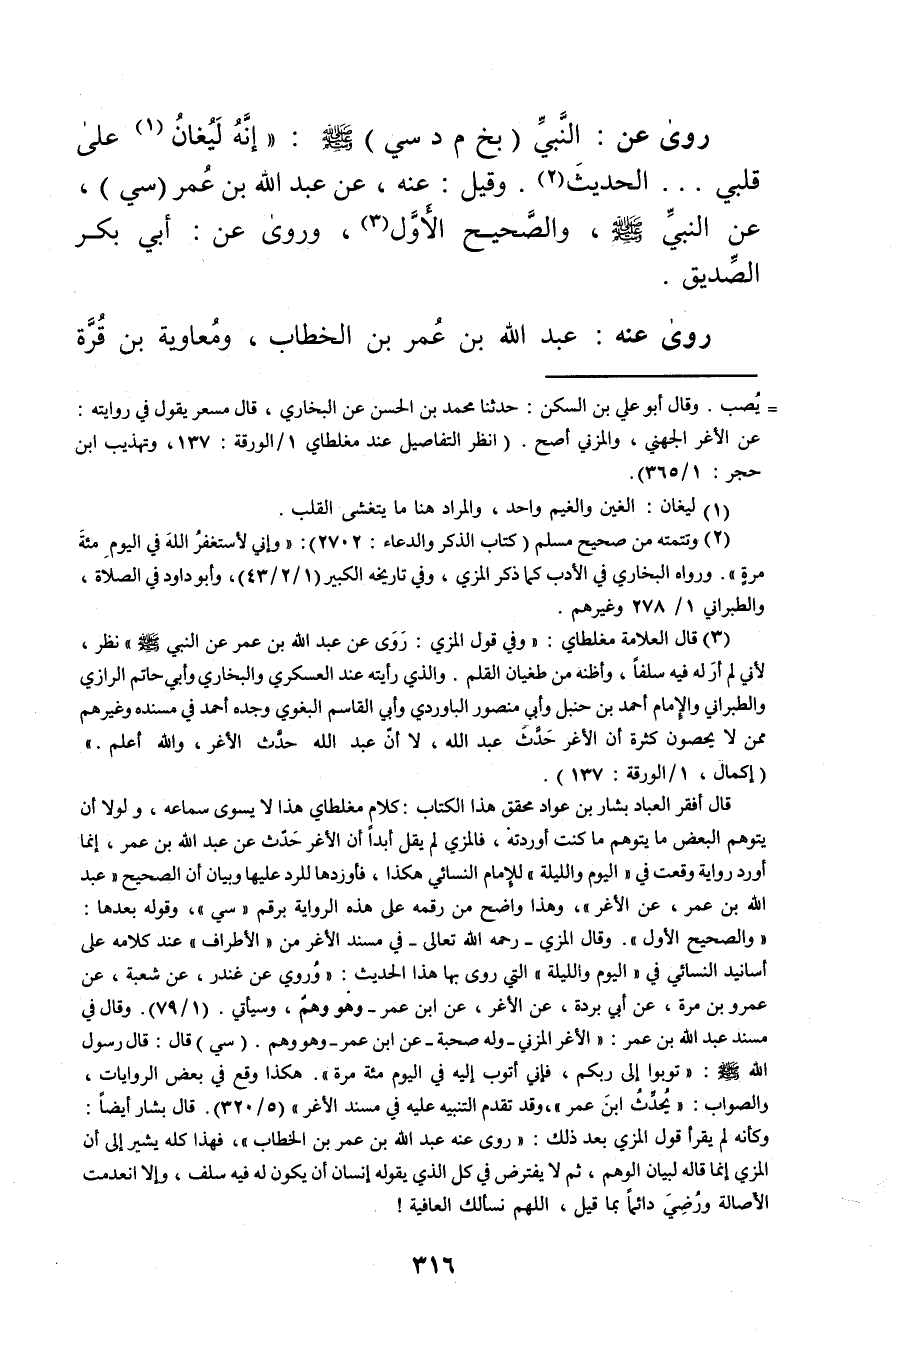 روىٰ عن : النَّبيِّ ( بخ م د سي ) ﷺ : « إنَّهُ لَيُغانُ (١) علىٰ
قلبي . . . الحديثَ(٢) . وقيل : عنه ، عن عبد الله بن عُمر (سي ) ،
عن النبيِّ ﷺ ، والصَّحيح الأَوَّل(٣) ، وروىٰ عن : أبي بكر
الصِّديق .
روىٰ عنه : عبد الله بن عُمر بن الخطاب ، ومُعاوية بن قُرَّة
= يُصب . وقال أبو علي بن السكن : حدثنا محمد بن الحسن عن البخاري ، قال مسعر يقول في روايته :
عن الأغر الجهني ، والمزني أصح . ( انظر التفاصيل عند مغلطاي ١/الورقة : ١٣٧ ، وتهذيب ابن
حجر : ٣٦٥/١).
(١) ليغان : الغين والغيم واحد ، والمراد هنا ما يتغشى القلب .
(٢) وتتمته من صحيح مسلم ( كتاب الذكر والدعاء : ٢٧٠٢): « وإني لأستغفرُ اللهَ في اليومِ مئةَ
مرةٍ ». ورواه البخاري في الأدب كما ذكر المزي ، وفي تاريخه الكبير (٤٣/٢/١)، وأبو داود في الصلاة ،
والطبراني ١/ ٢٧٨ وغيرهم .
(٣) قال العلامة مغلطاي : « وفي قول المزي : رَوَى عن عبد الله بن عمر عن النبي ﷺ » نظر ،
لأني لم أرَ له فيه سلفاً ، وأظنه من طغيان القلم . والذي رأيته عند العسكري والبخاري وأبي حاتم الرازي
والطبراني والإمام أحمد بن حنبل وأبي منصور الباوردي وأبي القاسم البغوي وجده أحمد في مسنده وغيرهم
ممن لا يحصون كثرة أن الأغر حَدَّثَ عبد الله ، لا أنّ عبد الله حدَّث الأغر ، والله أعلم .»
( إكمال ، ١/الورقة : ١٣٧ ) .
قال أفقر العباد بشار بن عواد محقق هذا الكتاب : كلام مغلطاي هذا لا يسوى سماعه ، و لولا أن
يتوهم البعض ما يتوهم ما كنت أوردته ، فالمزي لم يقل أبداً أن الأغر حَدّث عن عبد الله بن عمر ، إنما
أورد رواية وقعت في « اليوم والليلة » للإمام النسائي هكذا ، فأوردها للرد عليها وبيان أن الصحيح « عبد
الله بن عمر ، عن الأغر »، وهذا واضح من رقمه على هذه الرواية برقم « سي »، وقوله بعدها :
« والصحيح الأول ». وقال المزي - رحمه الله تعالى - في مسند الأغر من « الأطراف » عند كلامه على
أسانيد النسائي في « اليوم والليلة » التي روى بها هذا الحديث : « وُروي عن غندر ، عن شعبة ، عن
عمرو بن مرة ، عن أبي بردة ، عن الأغر ، عن ابن عمر - وهو وهمٌ ، وسيأتي . (٧٩/١). وقال في
مسند عبد الله بن عمر : « الأغر المزني - وله صحبة - عن ابن عمر - وهو وهم . ( سي ) قال : قال رسول
الله ﷺ : « توبوا إلى ربكم ، فإني أتوب إليه في اليوم مئة مرة ». هكذا وقع في بعض الروايات ،
والصواب : « يُحدِّثُ ابنَ عمر »،وقد تقدم التنبيه عليه في مسند الأغر » (٣٢٠/٥). قال بشار أيضاً :
وكأنه لم يقرأ قول المزي بعد ذلك : « روى عنه عبد الله بن عمر بن الخطاب »، فهذا كله يشير إلى أن
المزي إنما قاله لبيان الوهم ، ثم لا يفترض في كل الذي يقوله إنسان أن يكون له فيه سلف ، وإلا انعدمت
الأصالة ورُضِيَ دائماً بما قيل ، اللهم نسألك العافية !
٣١٦